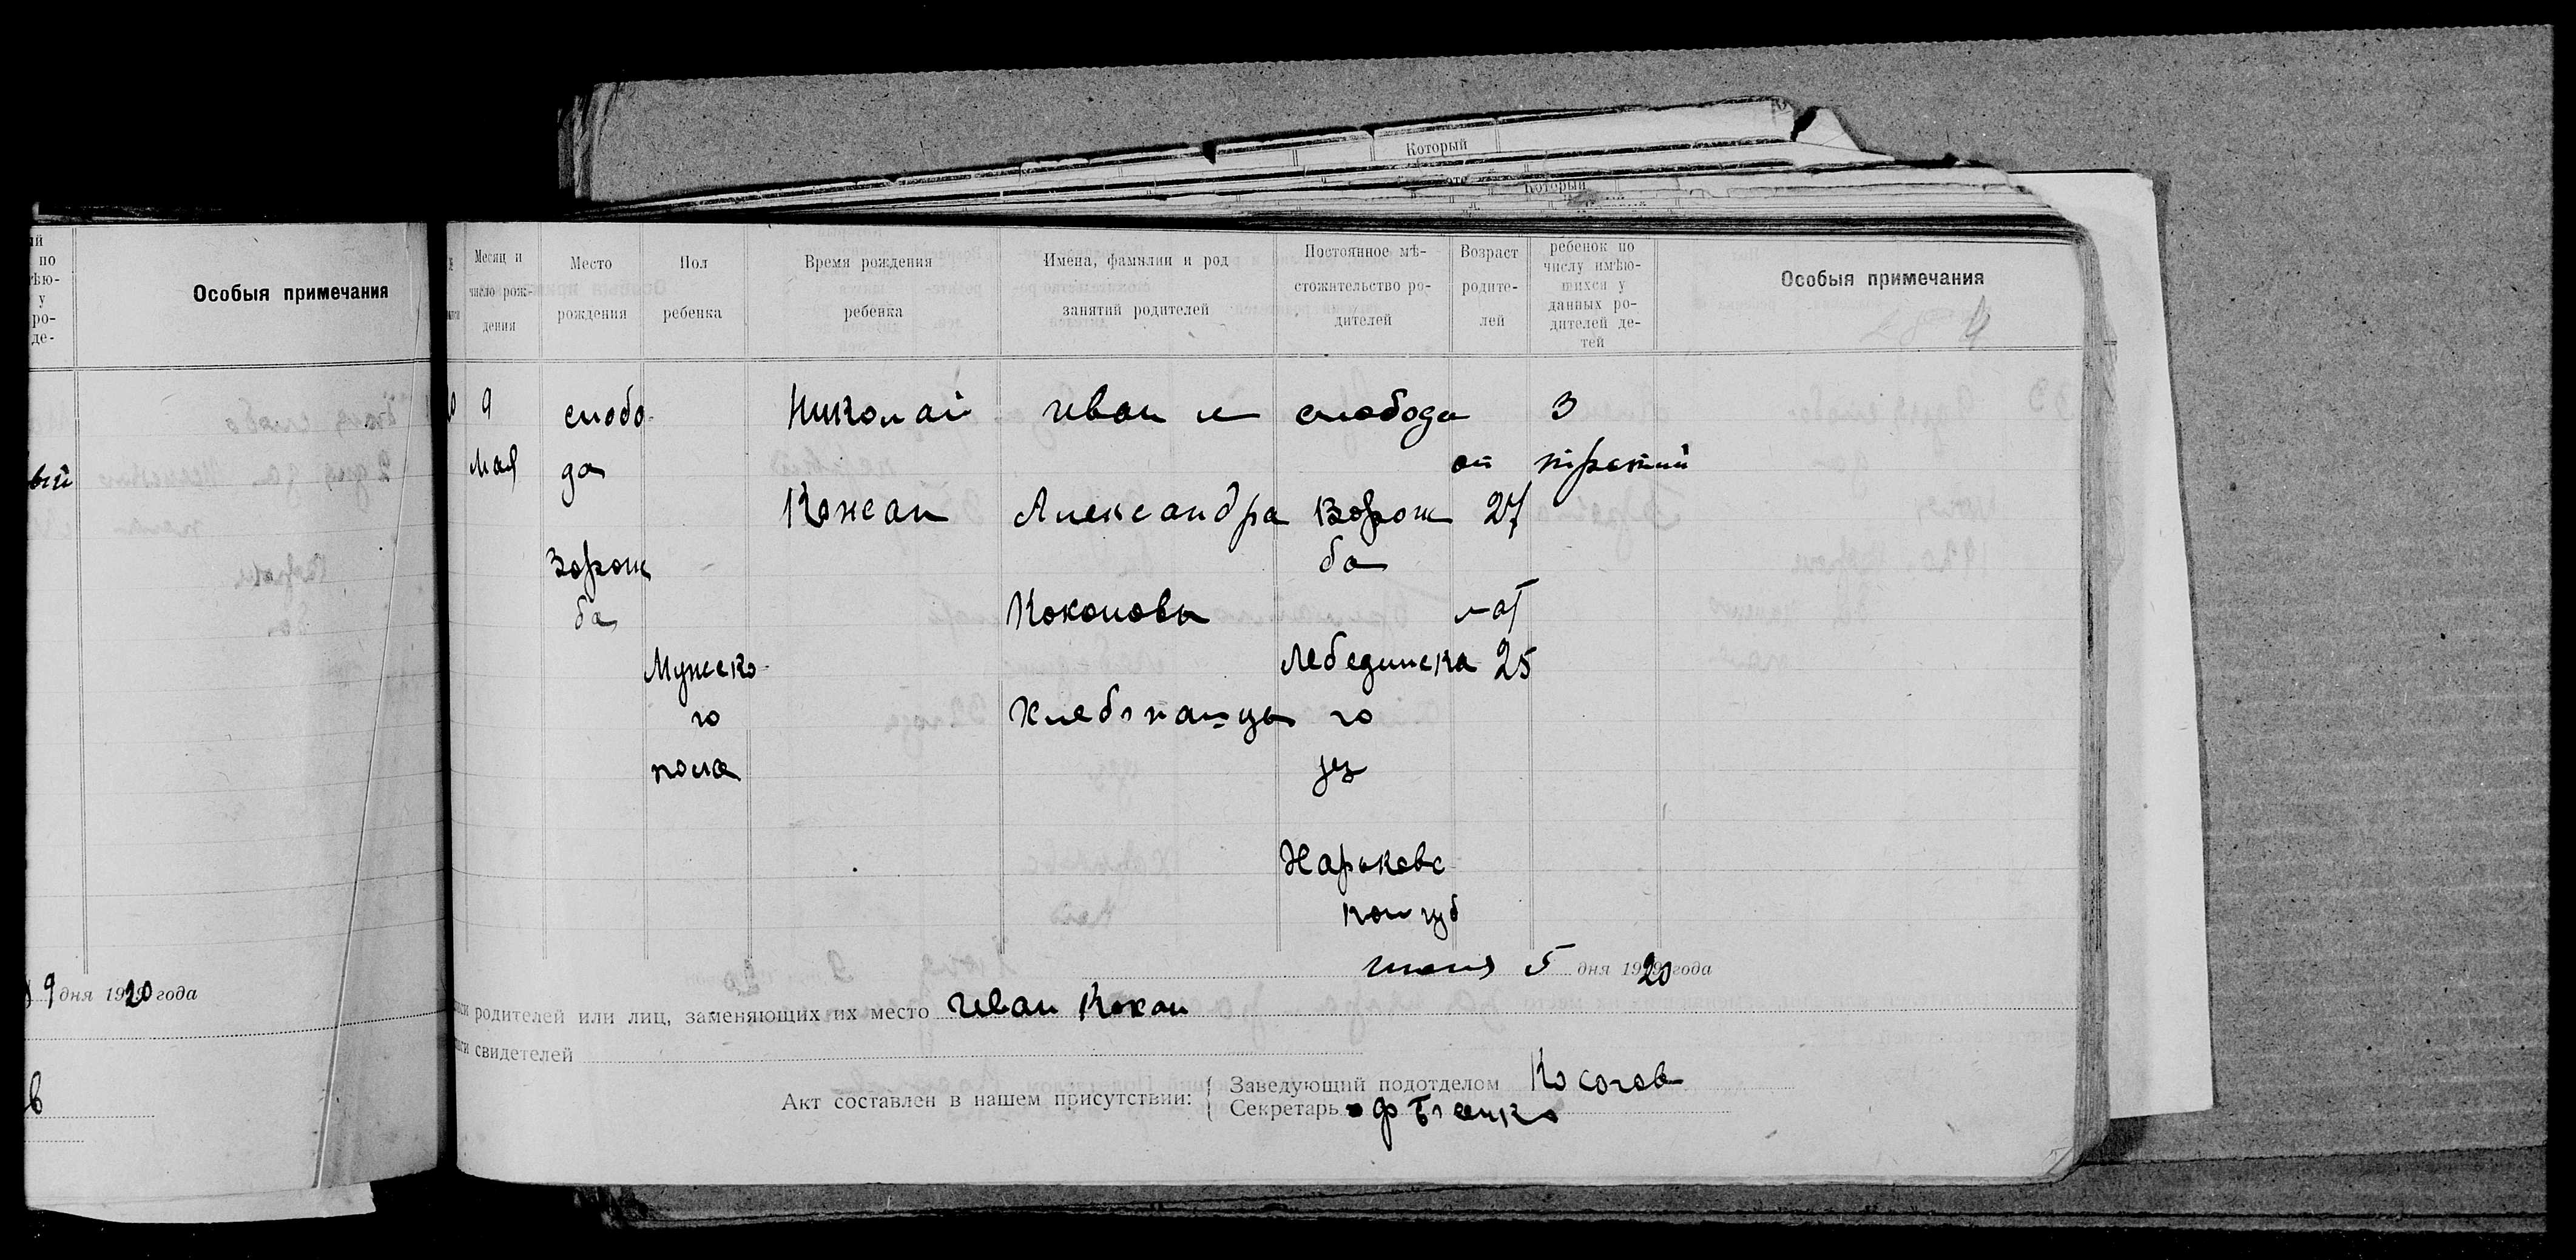 Который
Который
ий
по
ѣю-
у
ро-
де-
Особыя примечания
вый
9 дня 1920 года
в
Месяц и
число рож-
дения
Место
рождения
Пол
ребенка
Время рождения
ребенка
Имена, фамилии и род
занятий родителей
Постоянное мѣ-
стожительство ро-
дителей
Возраст
родите-
лей
ребенок по
числу имѣю-
шихся у
данных ро-
дителей де-
тей
Особыя примечания
9
мая
слобо
да
Ворож
ба
Мужско
го
пола
Николай
Кокан
Иван и
Александра
Коконовы
Хлебопашцы
слобода
Ворож
ба
Лебединска
го
уез
Харьковс
кой губ
от
27
мат
25
3
третий
июня 5 дня 1920 года
родителей или лиц, заменяющих их место Иван Кокан
свидетелей
Акт составлен в нашем присутствии:
Заведующий подотделом Косогов
Секретарь